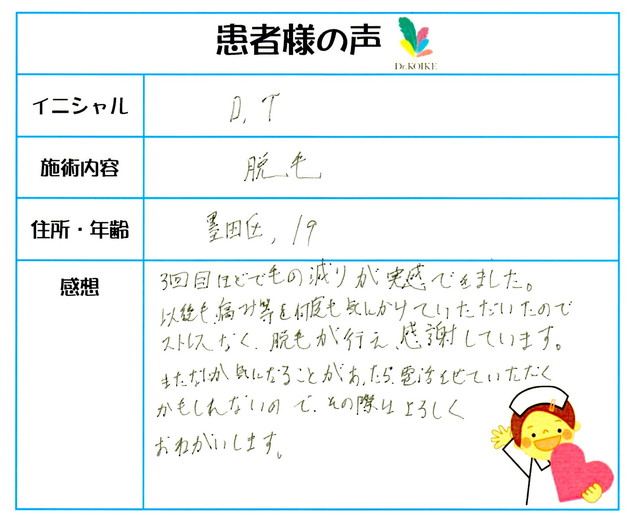 患者様の声
Dr.KOIKE
イニシャル
D, T
施術内容
脱毛
住所・年齢
墨田区, 19
感想
3回目ほどで毛の減りが実感できました。
以後も、痛み等を何度も気にかけていただいたので
ストレスなく、脱毛が行え、感謝しています。
またなにか気になることがあったら、電話させていただく
かもしれないので、その際はよろしく
おねがいします。